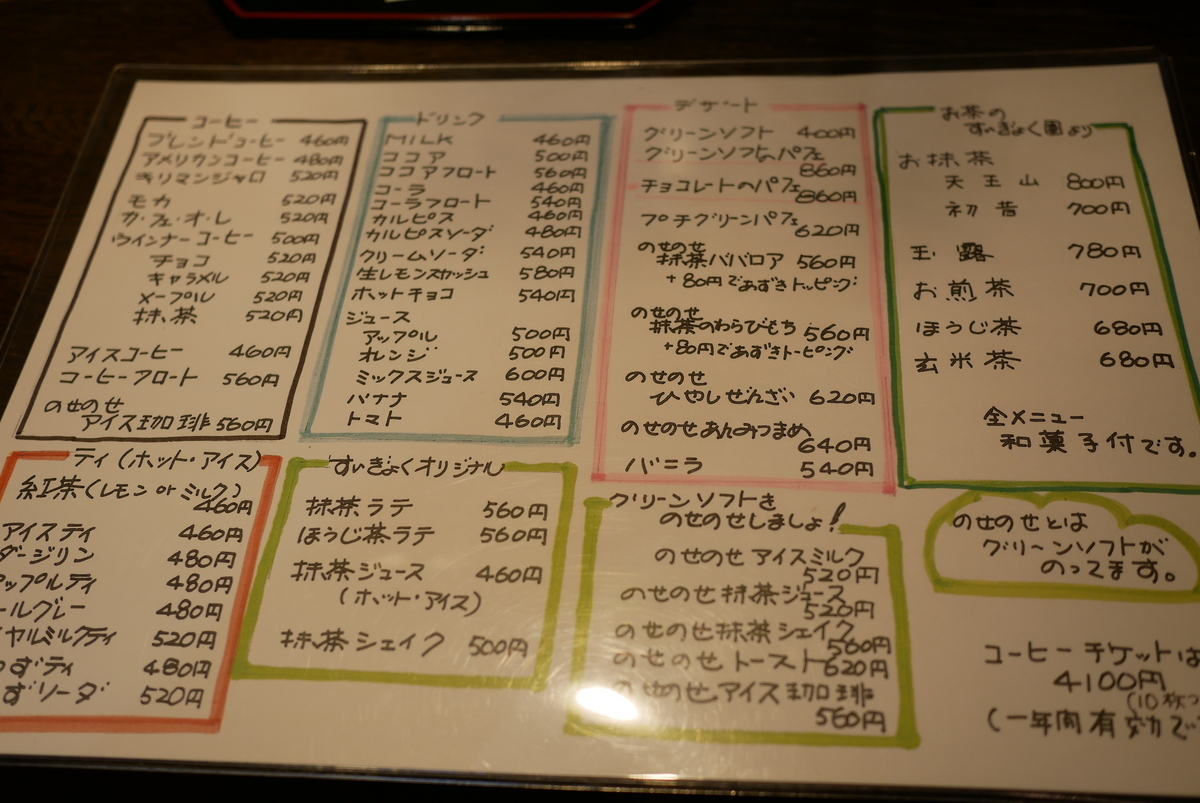 コーヒー
ブレンドコーヒー 460円
アメリカンコーヒー 480円
キリマンジャロ 520円
モカ 520円
カ・フェ・オ・レ 520円
ウインナーコーヒー 500円
チョコ 520円
キャラメル 520円
メープル 520円
抹茶 520円
アイスコーヒー 460円
コーヒーフロート 560円
のせのせ
アイス珈琲 560円
ドリンク
MILK 460円
ココア 500円
ココアフロート 560円
コーラ 460円
コーラフロート 540円
カルピス 460円
カルピスソーダ 480円
クリームソーダ 540円
生レモンスカッシュ 580円
ホットチョコ 540円
ジュース
アップル 500円
オレンジ 500円
ミックスジュース 600円
バナナ 540円
トマト 460円
デザート
グリーンソフト 400円
グリーンソフトのパフェ
860円
チョコレートのパフェ
860円
プチグリーンパフェ
620円
のせのせ
抹茶ババロア 560円
+80円であずきトッピング
のせのせ
抹茶のわらびもち 560円
+80円であずきトーピング
のせのせ
ひやしぜんざい 620円
のせのせあんみつまめ
640円
バニラ 540円
お茶の
すいぎょく園より
お抹茶
天王山 800円
初昔 700円
玉露 780円
お煎茶 700円
ほうじ茶 680円
玄米茶 680円
全メニュー
和菓子付です。
ティ(ホット・アイス)
紅茶(レモン or ミルク)
460円
アイスティ 460円
ダージリン 480円
ップルティ 480円
ールグレー 480円
イヤルミルクティ 520円
ずティ 480円
ずソーダ 520円
すいぎょくオリジナル
抹茶ラテ 560円
ほうじ茶ラテ 560円
抹茶ジュース 460円
(ホット・アイス)
抹茶シェイク 500円
グリーンソフトを
のせのせしましょ!
のせのせアイスミルク
520円
のせのせ抹茶ジュース
520円
のせのせ抹茶シェイク
560円
のせのせトースト620円
のせのせアイス珈琲
560円
のせのせとは
グリーンソフトが
のってます。
コーヒーチケットは
4100円
(10枚つ
(一年間有効で